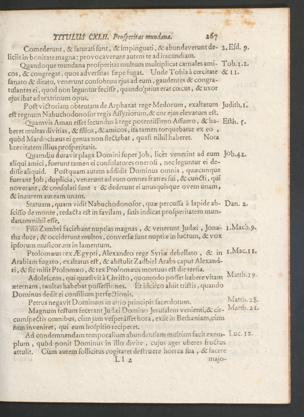 TITULUS CXLII. Prosperitas mundana. 267
Comederunt, & saturati sunt, & impinguati, & abundaverunt de- 2. Esd. 9.
liciis in bonitate magna: provocaverunt autem te ad iracundiam.
Quandoque mundana prosperitas multum multiplicat carnales ami- Tob. 1. 2.
cos, & congregat, quos adversitas sæpe fugat. Unde Tobiæ cæcitate & 11.
sanato & ditato, venerunt consobrini ejus ad eum, gaudentes & congra-
tulantes ei, quod non leguntur fecisse, quando prius erat cæcus, & uxor
ejus ibat ad textrinum opus.
Post victoriam obtentam de Arphaxat rege Medorum, exaltatum Judith. 1.
est regnum Nabuchodonosor regis Assyriorum, & cor ejus elevatum est.
Quamvis Aman esset secundus à rege potentissimo Assuero, & ha- Esth. 5.
beret multas divitias, & filios, & amicos, ista tamen torquebatur ex eo,
quòd Mardochæus ei genua non flectebat, quasi nihil haberet. Nota
brevitatem illius prosperitatis.
Quamdiu duravit plaga Domini super Job, licèt venerint ad eum Job. 42.
aliqui amici, fuerunt tamen ei consolatores onerosi, nec leguntur ei de-
disse aliquid. Postquam autem addidit Dominus omnia, quæcunque
fuerunt Job, duplicia, venerunt ad eum omnes fratres sui, & cuncti, qui
noverant, & consolati sunt: & dederunt ei unusquisque ovem unam,
& inaurem auream unam.
Statuam, quam vidit Nabuchodonosor, quæ percussa à lapide ab- Dan. 2.
scisso de monte, redacta est in favillam, satis indicat prosperitatem mun-
danam nihil esse.
Filii Zambri faciebant nuptias magnas, & venerunt Judæi, Jona- 1. Mach. 9.
tha duce, & occiderunt multos, conversæ sunt nuptiæ in luctum, & vox
ipsorum musicorum in lamentum.
Ptolomæus rex Ægypti, Alexandro rege Syriæ debellato, & in 1. Mac. 11.
Arabiam fugato, exaltatus est, & abstulit Zabdiel Arabs caput Alexand-
ri, & sic misit Ptolomæo, & rex Ptolomæus mortuus est die tertia.
Adolescens, qui quæsivit à Christo, quomodo posset habere vitam Matth. 19.
æternam, tacitas habebat possessiones. Et ideò abiit tristis, quando
Dominus dedit ei consilium perfectionis.
Petrus negavit Dominum in atrio principis sacerdotum. Matth. 28.
Magnum festum fecerant Judæi Domino Jerusalem venienti, & cir- Matth. 21.
cumspectis omnibus, cùm jam vesperasset hora, exiit in Bethaniam, cùm
non inveniret, qui eum hospitio reciperet.
Ad condemnandum temporalium abundantiam multùm facit exem- Luc. 12.
plum, quod ponit Dominus in illo divite, cujus ager uberes fructus
attulit. Cùm autem sollicitus cogitaret destruere horrea sua, & facere
Ll 2 majo-